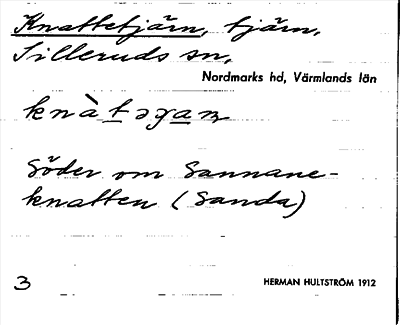 Knattetjärn, tjärn,
Silleruds sn,
Nordmarks hd, Värmlands län
Söder om Sannane-
knatten (Sanda)
3 HERMAN HULTSTRÖM 1912